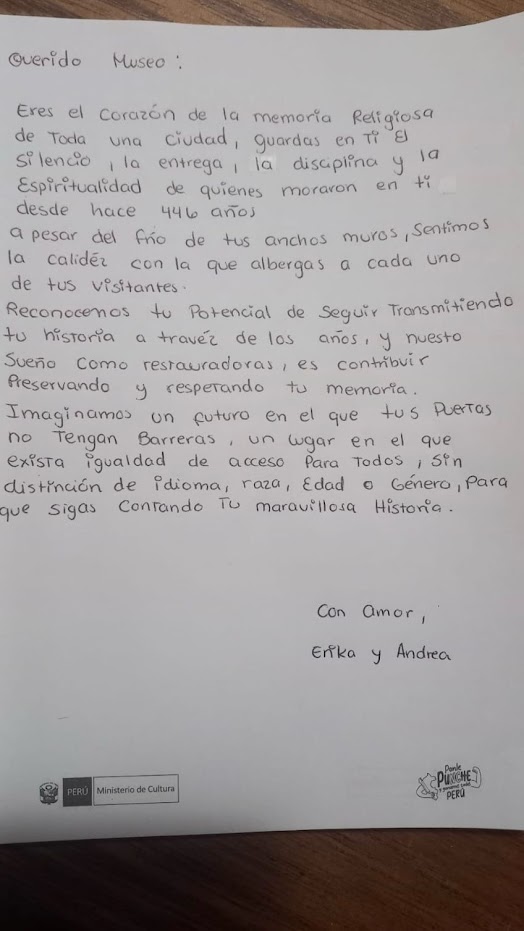 Querido Museo:
Eres el corazón de la memoria Religiosa
de Toda una ciudad, guardas en Ti El
Silencio, la entrega, la disciplina y la
Espiritualidad de quienes moraron en ti
desde hace 446 años
a pesar del frío de tus anchos muros, Sentimos
la calidéz con la que albergas a cada uno
de tus visitantes.
Reconocemos tu Potencial de Seguir Transmitiendo
tu historia a travéz de los años, y nuesto
Sueño como restauradoras, es contribuir
Preservando y respetando tu memoria.
Imaginamos un futuro en el que tus Puertas
no Tengan Barreras, un lugar en el que
exista igualdad de acceso Para Todos, Sin
distinción de idioma, raza, Edad o Género, Para
que sigas Contando Tu maravillosa Historia.
Con amor,
Erika y Andrea
PERÚ Ministerio de Cultura
Ponle
PUNCHE
PERÚ